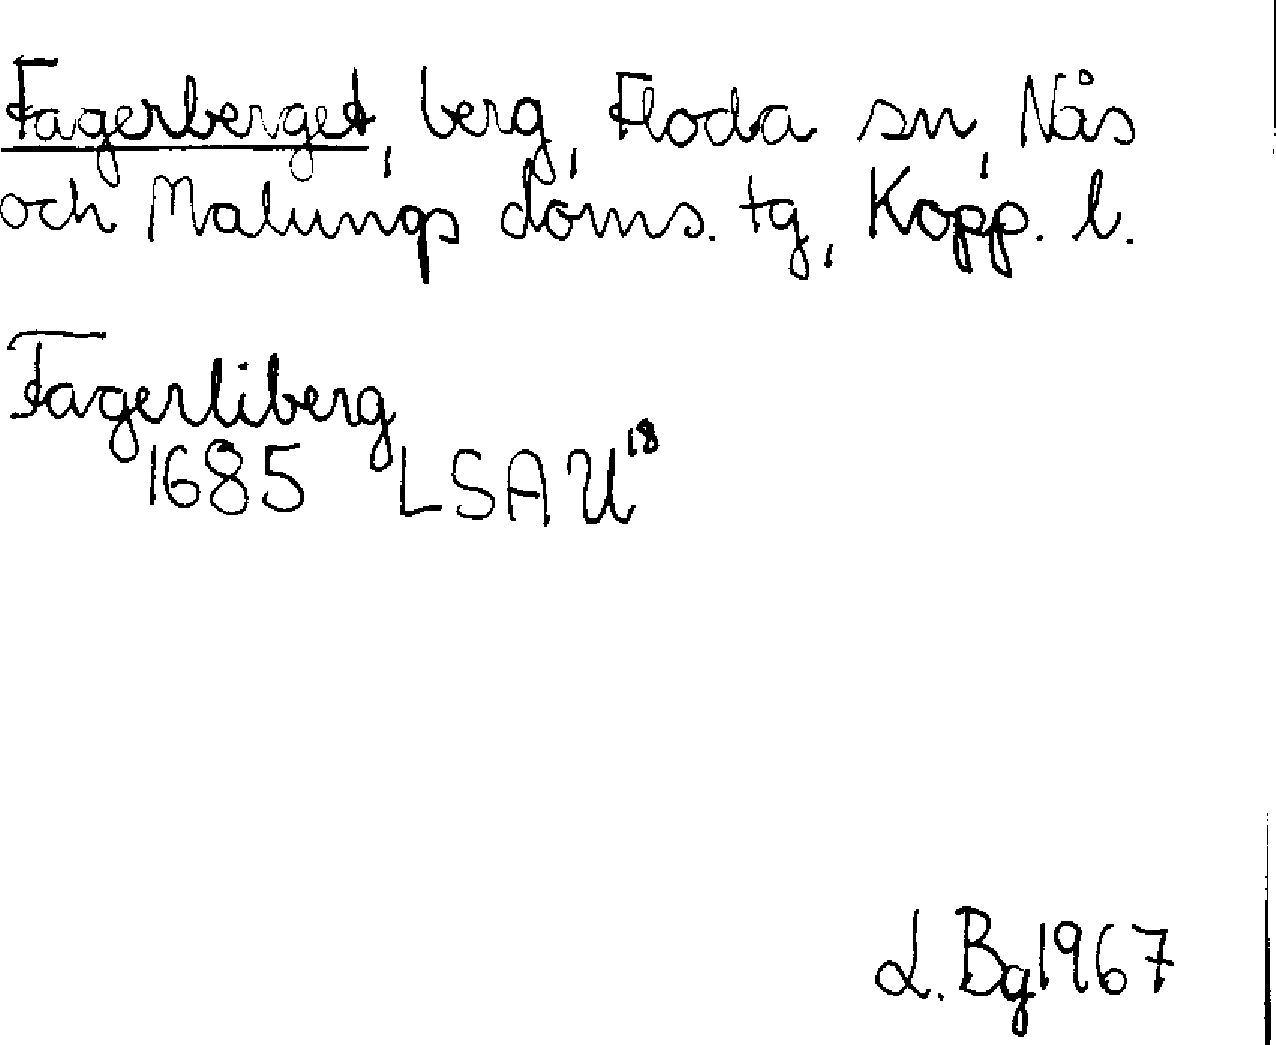 Fagerberget, berg, Floda sn, Nås
och Malungs doms. tg, Kopp. l.
Fagerliberg
1685 LSA U18
L. Bg 1967